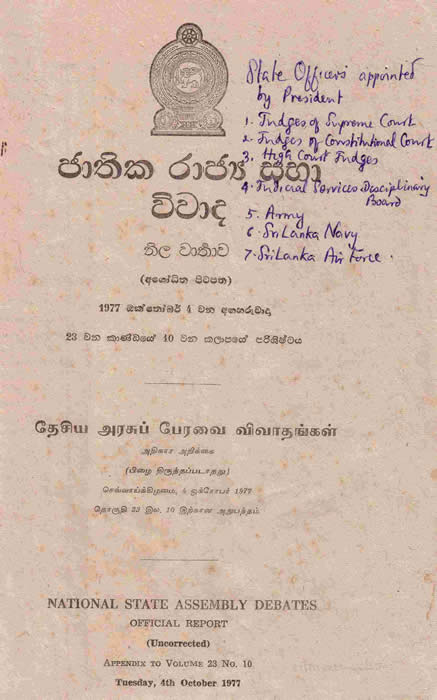 State Officers appointed
by President
1. Judges of Supreme Court
2. Judges of Constitutional Court
3. High Court Judges
4. Judicial Services Disciplinary
Board
5. Army
6. Sri Lanka Navy
7. Sri Lanka Air Force.
ජාතික රාජ්‍ය සභා
විවාද
නිල වාර්තාව
(අශෝධිත පිටපත)
1977 ඔක්තෝබර් 4 වන අඟහරුවාදා
23 වන කාණ්ඩයේ 10 වන කලාපයේ පරිශිෂ්ටය
தேசிய அரசுப் பேரவை விவாதங்கள்
அதிகார அறிக்கை
(பிழை திருத்தப்படாதது)
செவ்வாய்க்கிழமை, 4 ஒக்ரோபர் 1977
தொகுதி 23 இல. 10 இற்கான அநுபந்தம்
NATIONAL STATE ASSEMBLY DEBATES
OFFICIAL REPORT
(Uncorrected)
APPENDIX TO VOLUME 23 No. 10
Tuesday, 4th October 1977